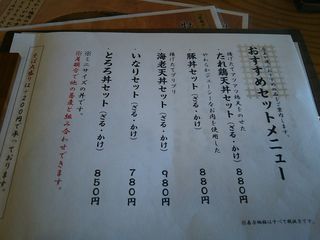 おすすめセットメニュー
揚げたてアツアツ鶏天をのせた
たれ鶏天丼セット(ざる・かけ) 880円
やわらかジューシーなお肉を使用した
豚丼セット(ざる・かけ) 880円
揚げたてプリプリ
海老天丼セット(ざる・かけ) 980円
いなりセット(ざる・かけ) 780円
とろろ丼セット(ざる・かけ) 850円
※ミニサイズの丼です。
※差額分で他の蕎麦と組み合わせできます。
※表示価格はすべて税抜きです。